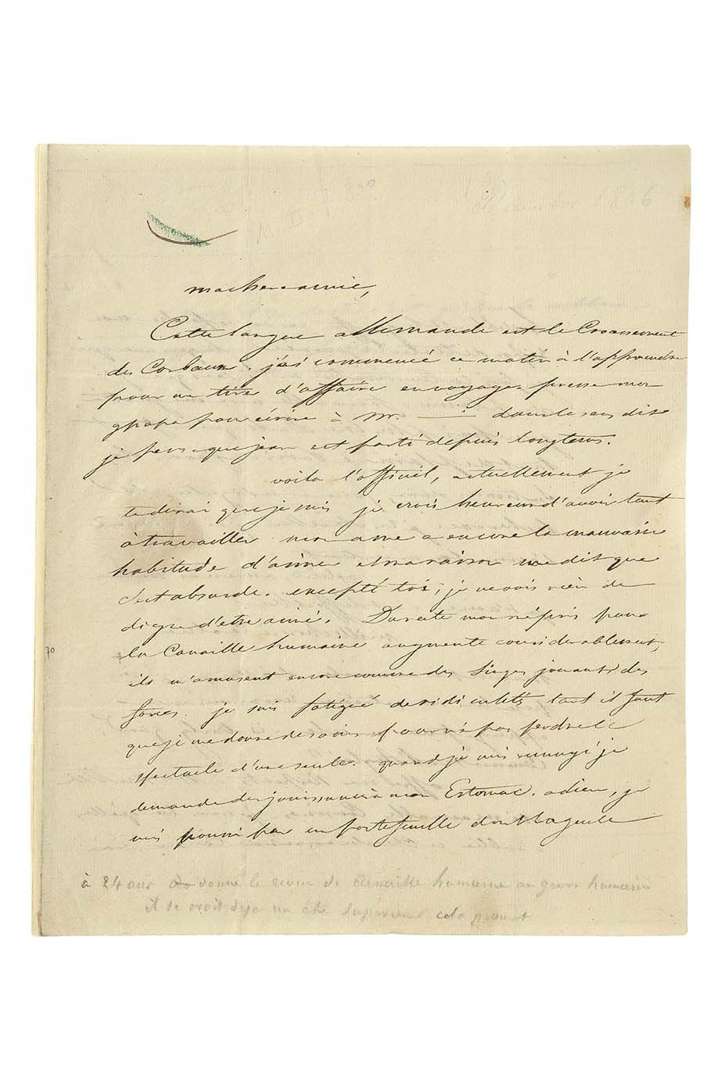 ma chere amie,
Cette langue allemande est le Croassement
des Corbeaux. j'ai commencé ce matin à l'apprendre
pour me tirer d'affaire en voyage, presse mon
papa pour écrire à Mr.
je pense que jean est parti depuis longtems.
voila l'officiel, actuellement je
te dirai que je suis je crois heureux d'avoir tant
à travailler mon ame a encore la mauvaise
habitude d'aimer et ma raison me dit que
c'est absurde. excepté toi, je ne vois rien de
digne d'etre aimé. Du reste mon mépris pour
la Canaille humaine augmente considerablement,
ils m'amusent encore comme des Singes jouant des
farces. je suis fatigué de ridicules tant il faut
que je me donne de soins pour ne pas perdre le
spectacle d'une seule. quand je suis ennuyé je
demande des jouissances à mon Estomac. adieu, je
suis par un portefeuille dont la gueule
70
à 24 ans donne le nom de canaille humaine au genre humain
il se croit déja un être supérieur cela promet